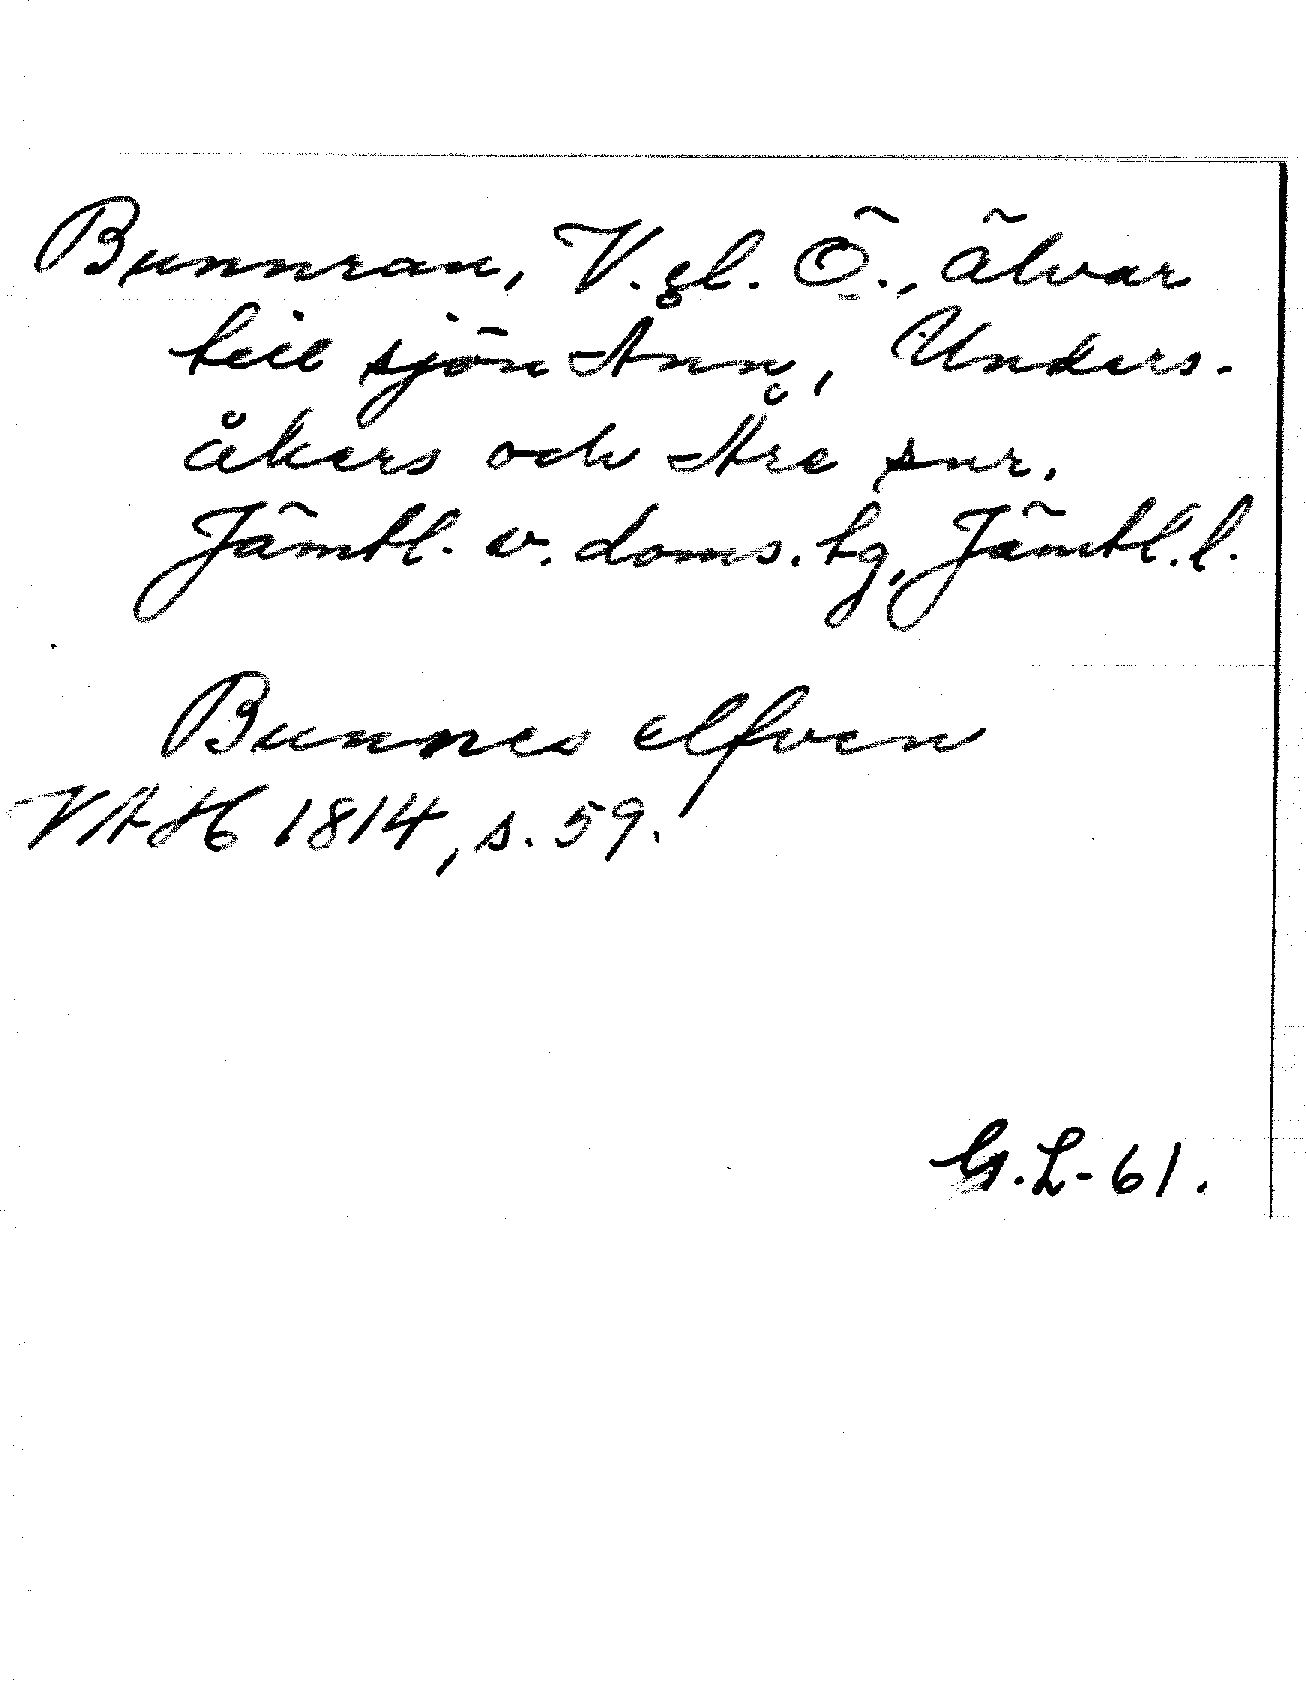 Bunnran, V. el. Ö., älvar
till sjön Ånn, Unders-
åkers och Åre snr.
Jämtl. v. doms. tg, Jämtl. l.
Bunnes elfven
VAH 1814, s. 59.
G. L-61.